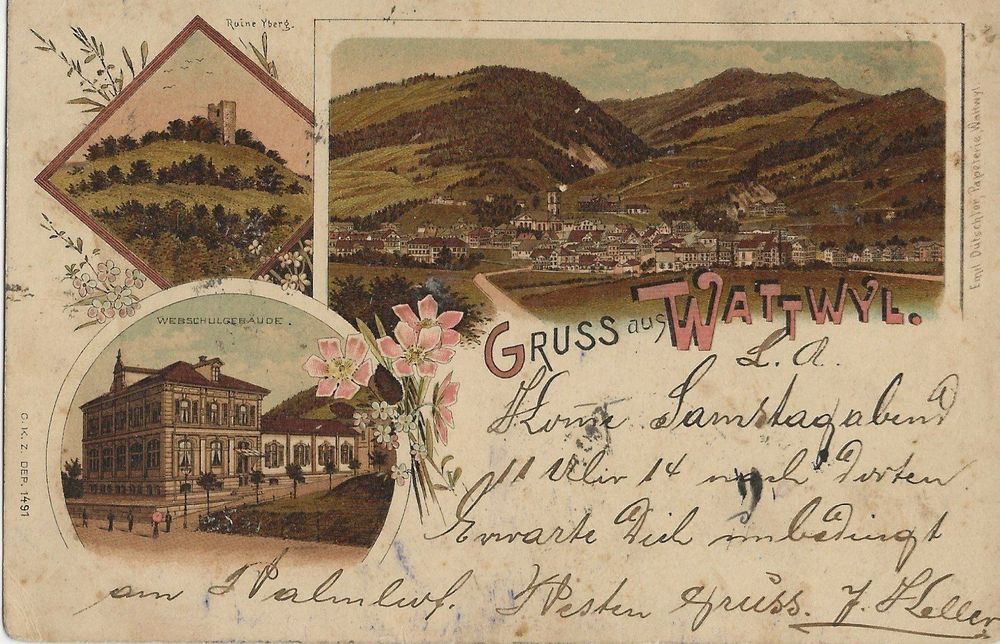 Ruine Yberg.
Emil Dutschler, Papeterie, Wattwyl
WEBSCHULGEBÄUDE.
C. K. Z. DEP. 1491
GRUSS aus WATTWYL.
L. A.
Kom̄e Samstag abend
11 Uhr 14 nach dorten
Erwarte Dich unbedingt
am Bahnhof. Besten Gruss. J. Keller